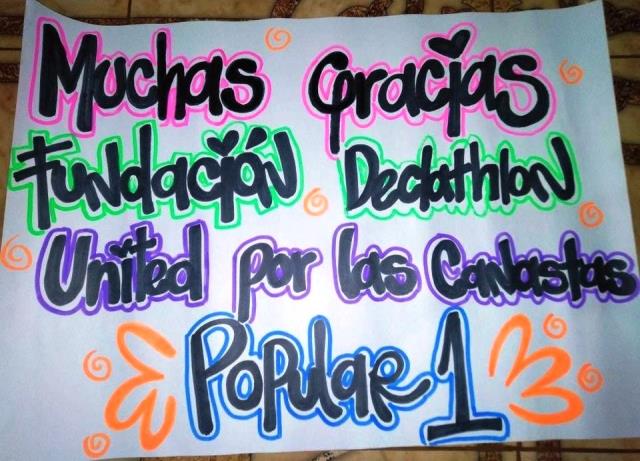 Muchas Gracias
Fundación Declathlon
United por las Canastas
Popular 1